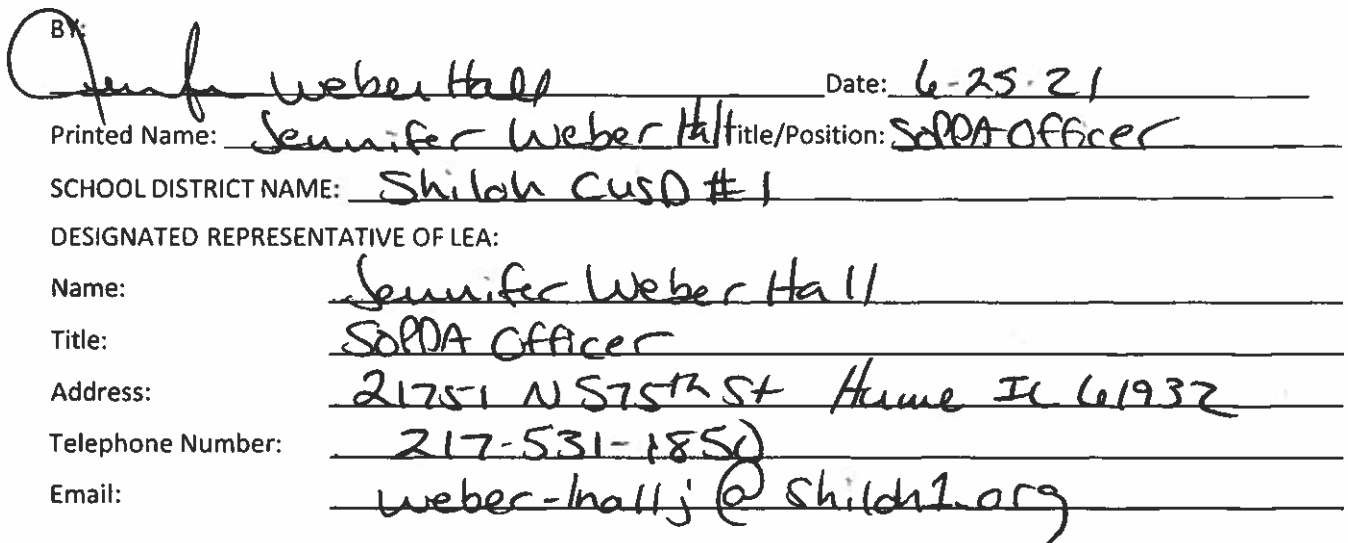 BY:
Jennifer Weber Hall Date: 6-25-21
Printed Name: Jennifer Weber Hall Title/Position: SOPPA Officer
SCHOOL DISTRICT NAME: Shiloh CUSD #1
DESIGNATED REPRESENTATIVE OF LEA:
Name: Jennifer Weber Hall
Title: SOPPA Officer
Address: 21751 N 575th St Hume IL 61932
Telephone Number: 217-531-1850
Email: weber-hallj@shiloh1.org